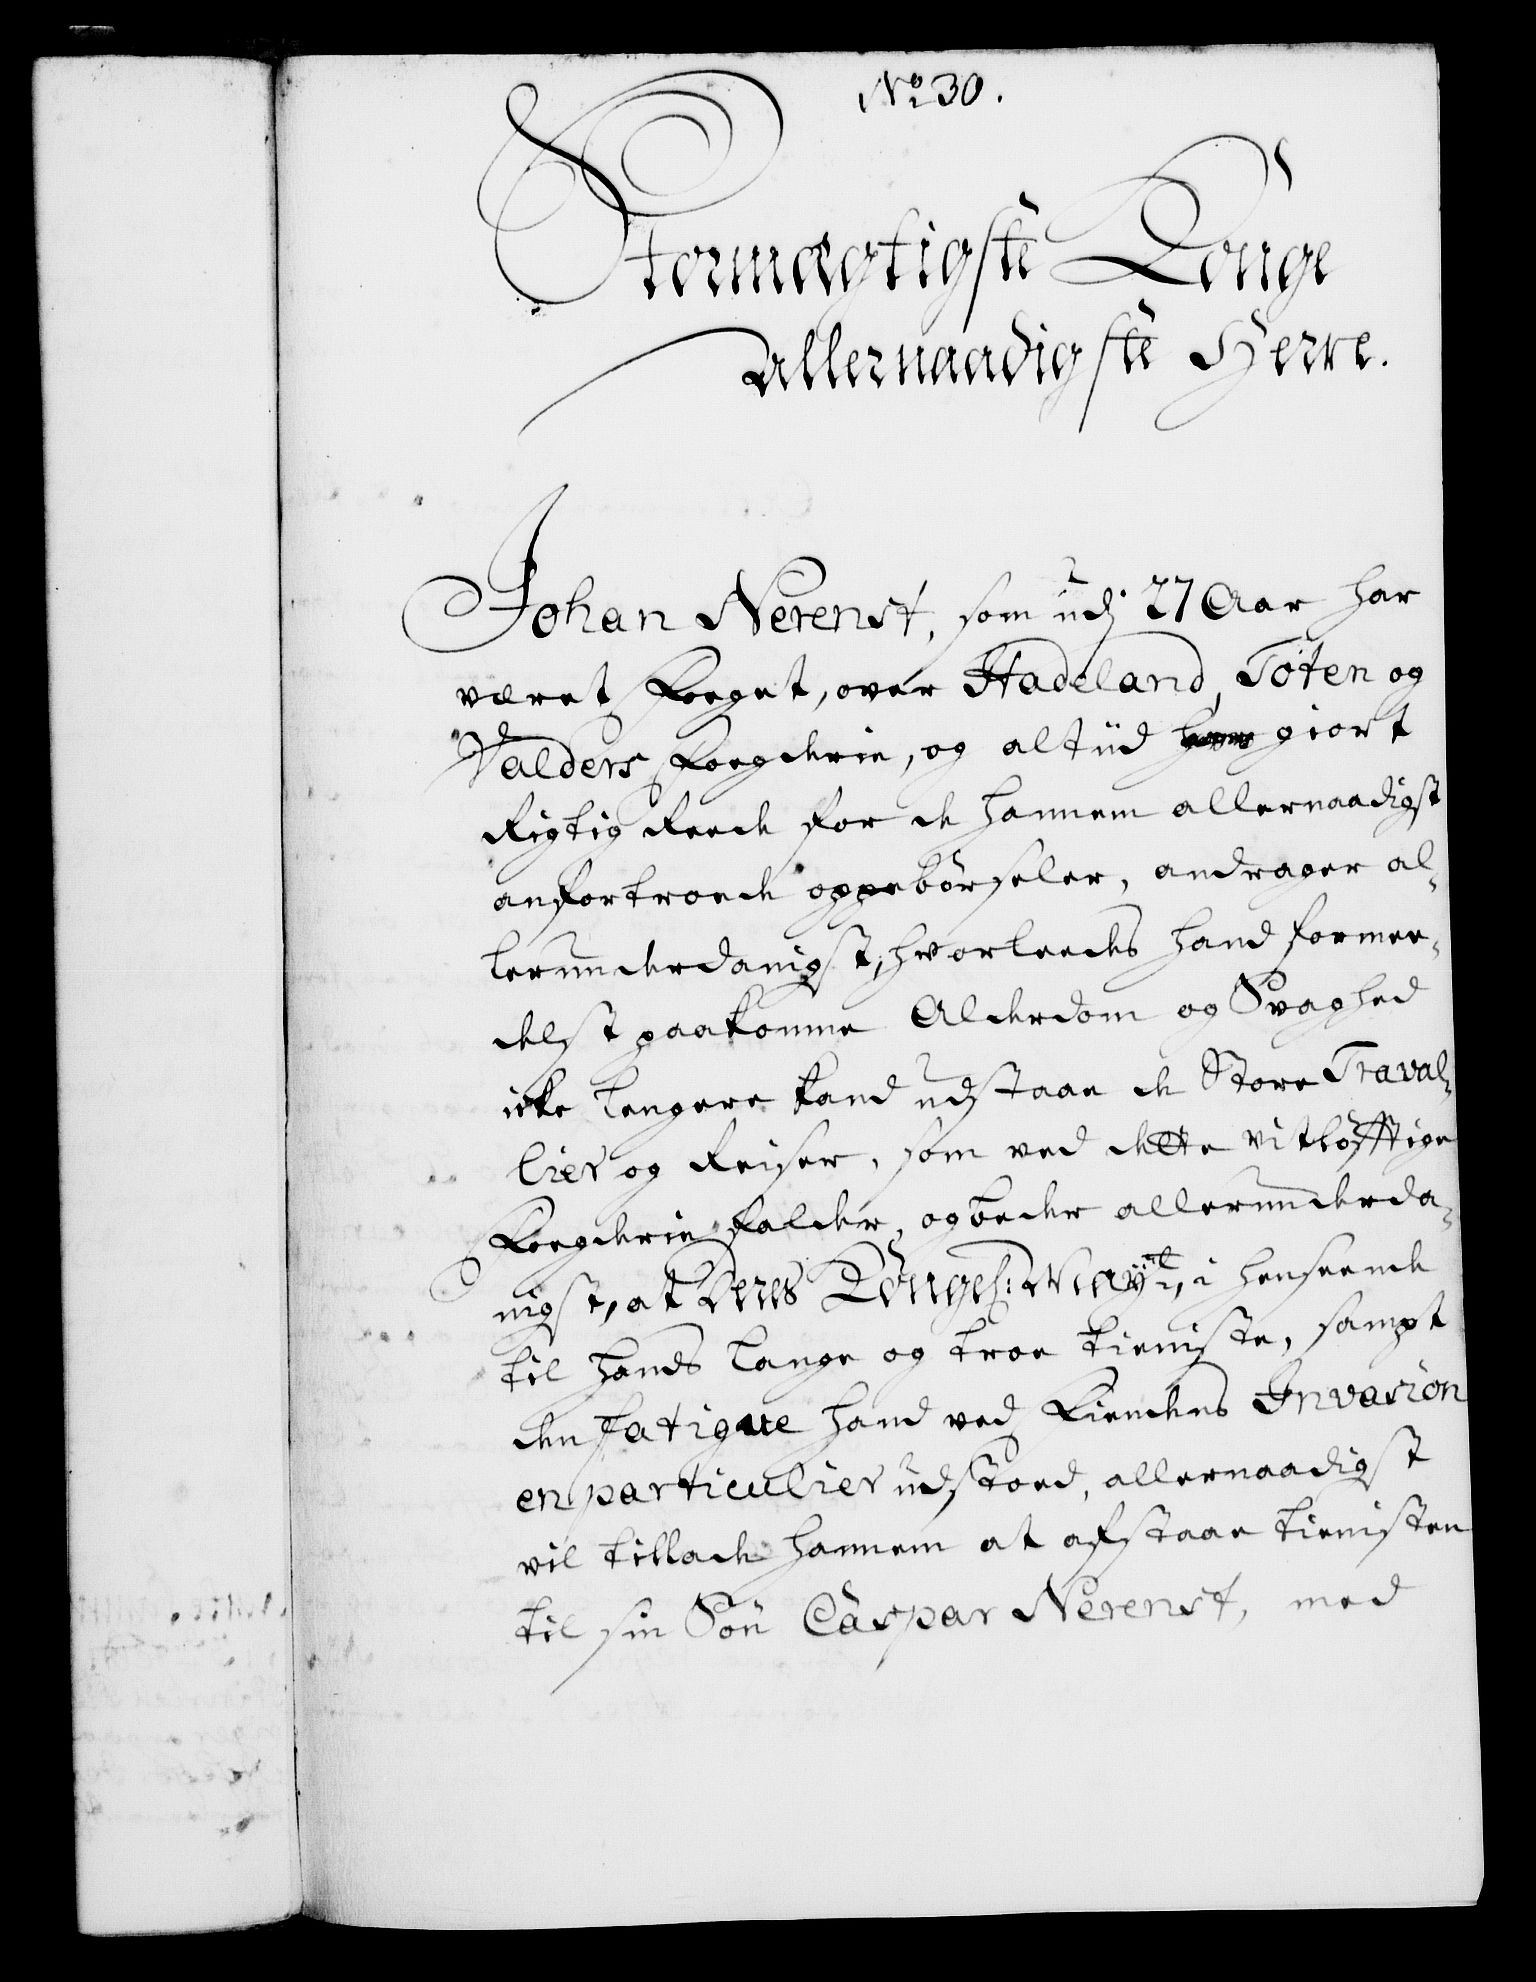 No 30.
Stormægtigste Konge
Allernaadigste Herre.
Johan Nerenst, som udj 27 Aar har
været Foeget, over Hadeland, Toten og
Valders Foegderie, og altiid giort
Rigtig Reede for de hannem allernaadigst
anfortroede oppebörseler, andrager al-
lerunderdanigst, hvorleedes hand formee-
delst paakomne Alderdom og Svaghed
icke lengere kand udstaae de Store Traval-
lier og Reiser, som ved dette vitløfftige
Foegderie falder, og beder allerunderda-
nigst, at Deres Kongel: Mayts, i henseende
til hands lange og troe tieniste, sampt
den fatigue hand ved Fiendens Invasion
en particulier udstoed, allernaadigst
vil tillade hannem at afstaae tienisten
til sin Søn Caspar Nerenst, med